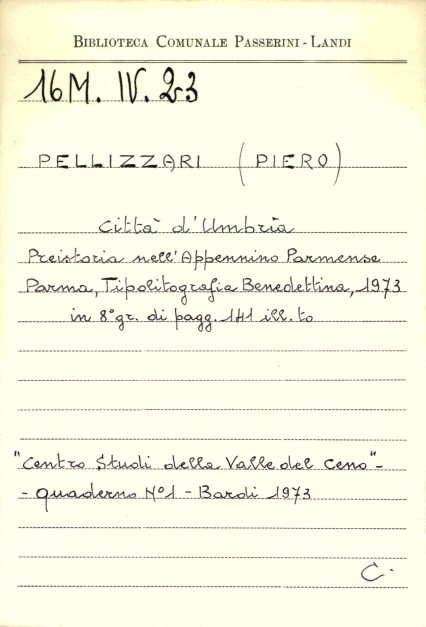 BIBLIOTECA COMUNALE PASSERINI - LANDI
16M. IV. 23
PELLIZZARI (PIERO)
Città d'Umbria
Preistoria nell'Appennino Parmense
Parma, Tipolitografia Benedettina, 1973
in 8° gr. di pagg. 141 ill. to
"Centro Studi della Valle del Ceno" -
- quaderno N° 1 - Bardi 1973
C.